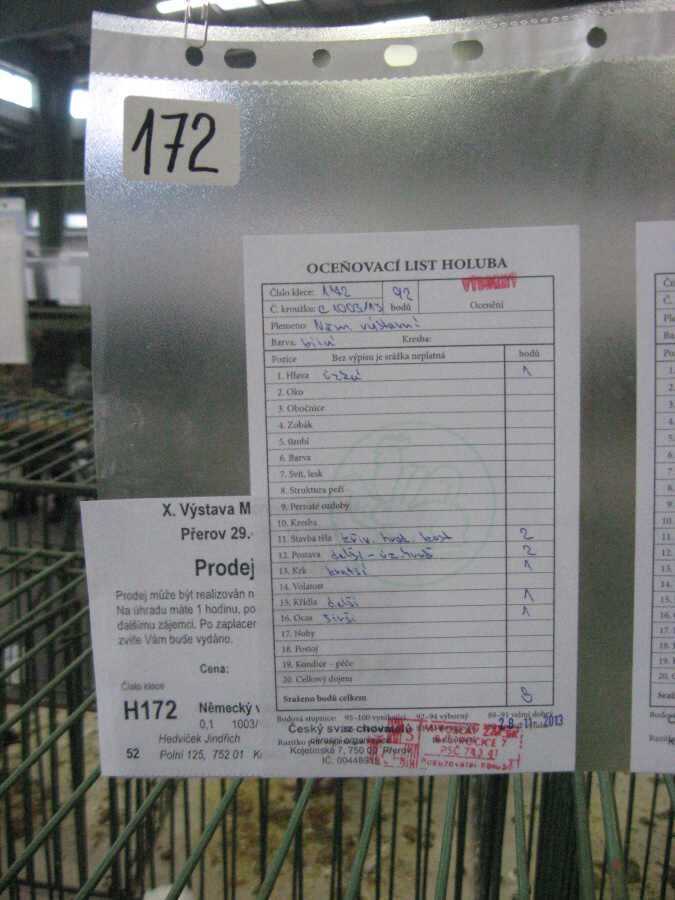 172
OCEŇOVACÍ LIST HOLUBA
Číslo klece: 172 92 VÝBORNÝ
Č. kroužku: C 1003/13 bodů Ocenění
Plemeno: Něm. výstavní
Barva: bílý Kresba:
Pozice Bez výpisu je srážka neplatná bodů
1. Hlava úzká 1
2. Oko
3. Obočnice
4. Zobák
5. Ozobí
6. Barva
7. Svit, lesk
8. Struktura peří
9. Pernaté ozdoby
10. Kresba
11. Stavba těla křiv. hrud. kost 2
12. Postava delší - úz. hrudí 2
13. Krk kratší 1
14. Volatost
15. Křídla delší 1
16. Ocas širší 1
17. Nohy
18. Postoj
19. Kondice - péče
20. Celkový dojem
Sraženo bodů celkem 8
Bodová stupnice: 95-100 vynikající 92-94 výborný 89-91 velmi dobrý
28. 11. 2013
X. Výstava M
Přerov 29.
Prodej
Prodej může být realizován n
Na úhradu máte 1 hodinu, po
dalšímu zájemci. Po zaplacer
zvíře Vám bude vydáno.
Cena:
Číslo klece
H172 Německý v
0,1 1003/
Hedvíček Jindřich
52 Polní 125, 752 01 K
Český svaz chovatelů
Kojetínská 7, 750 00 Přerov
IČ: 00448958